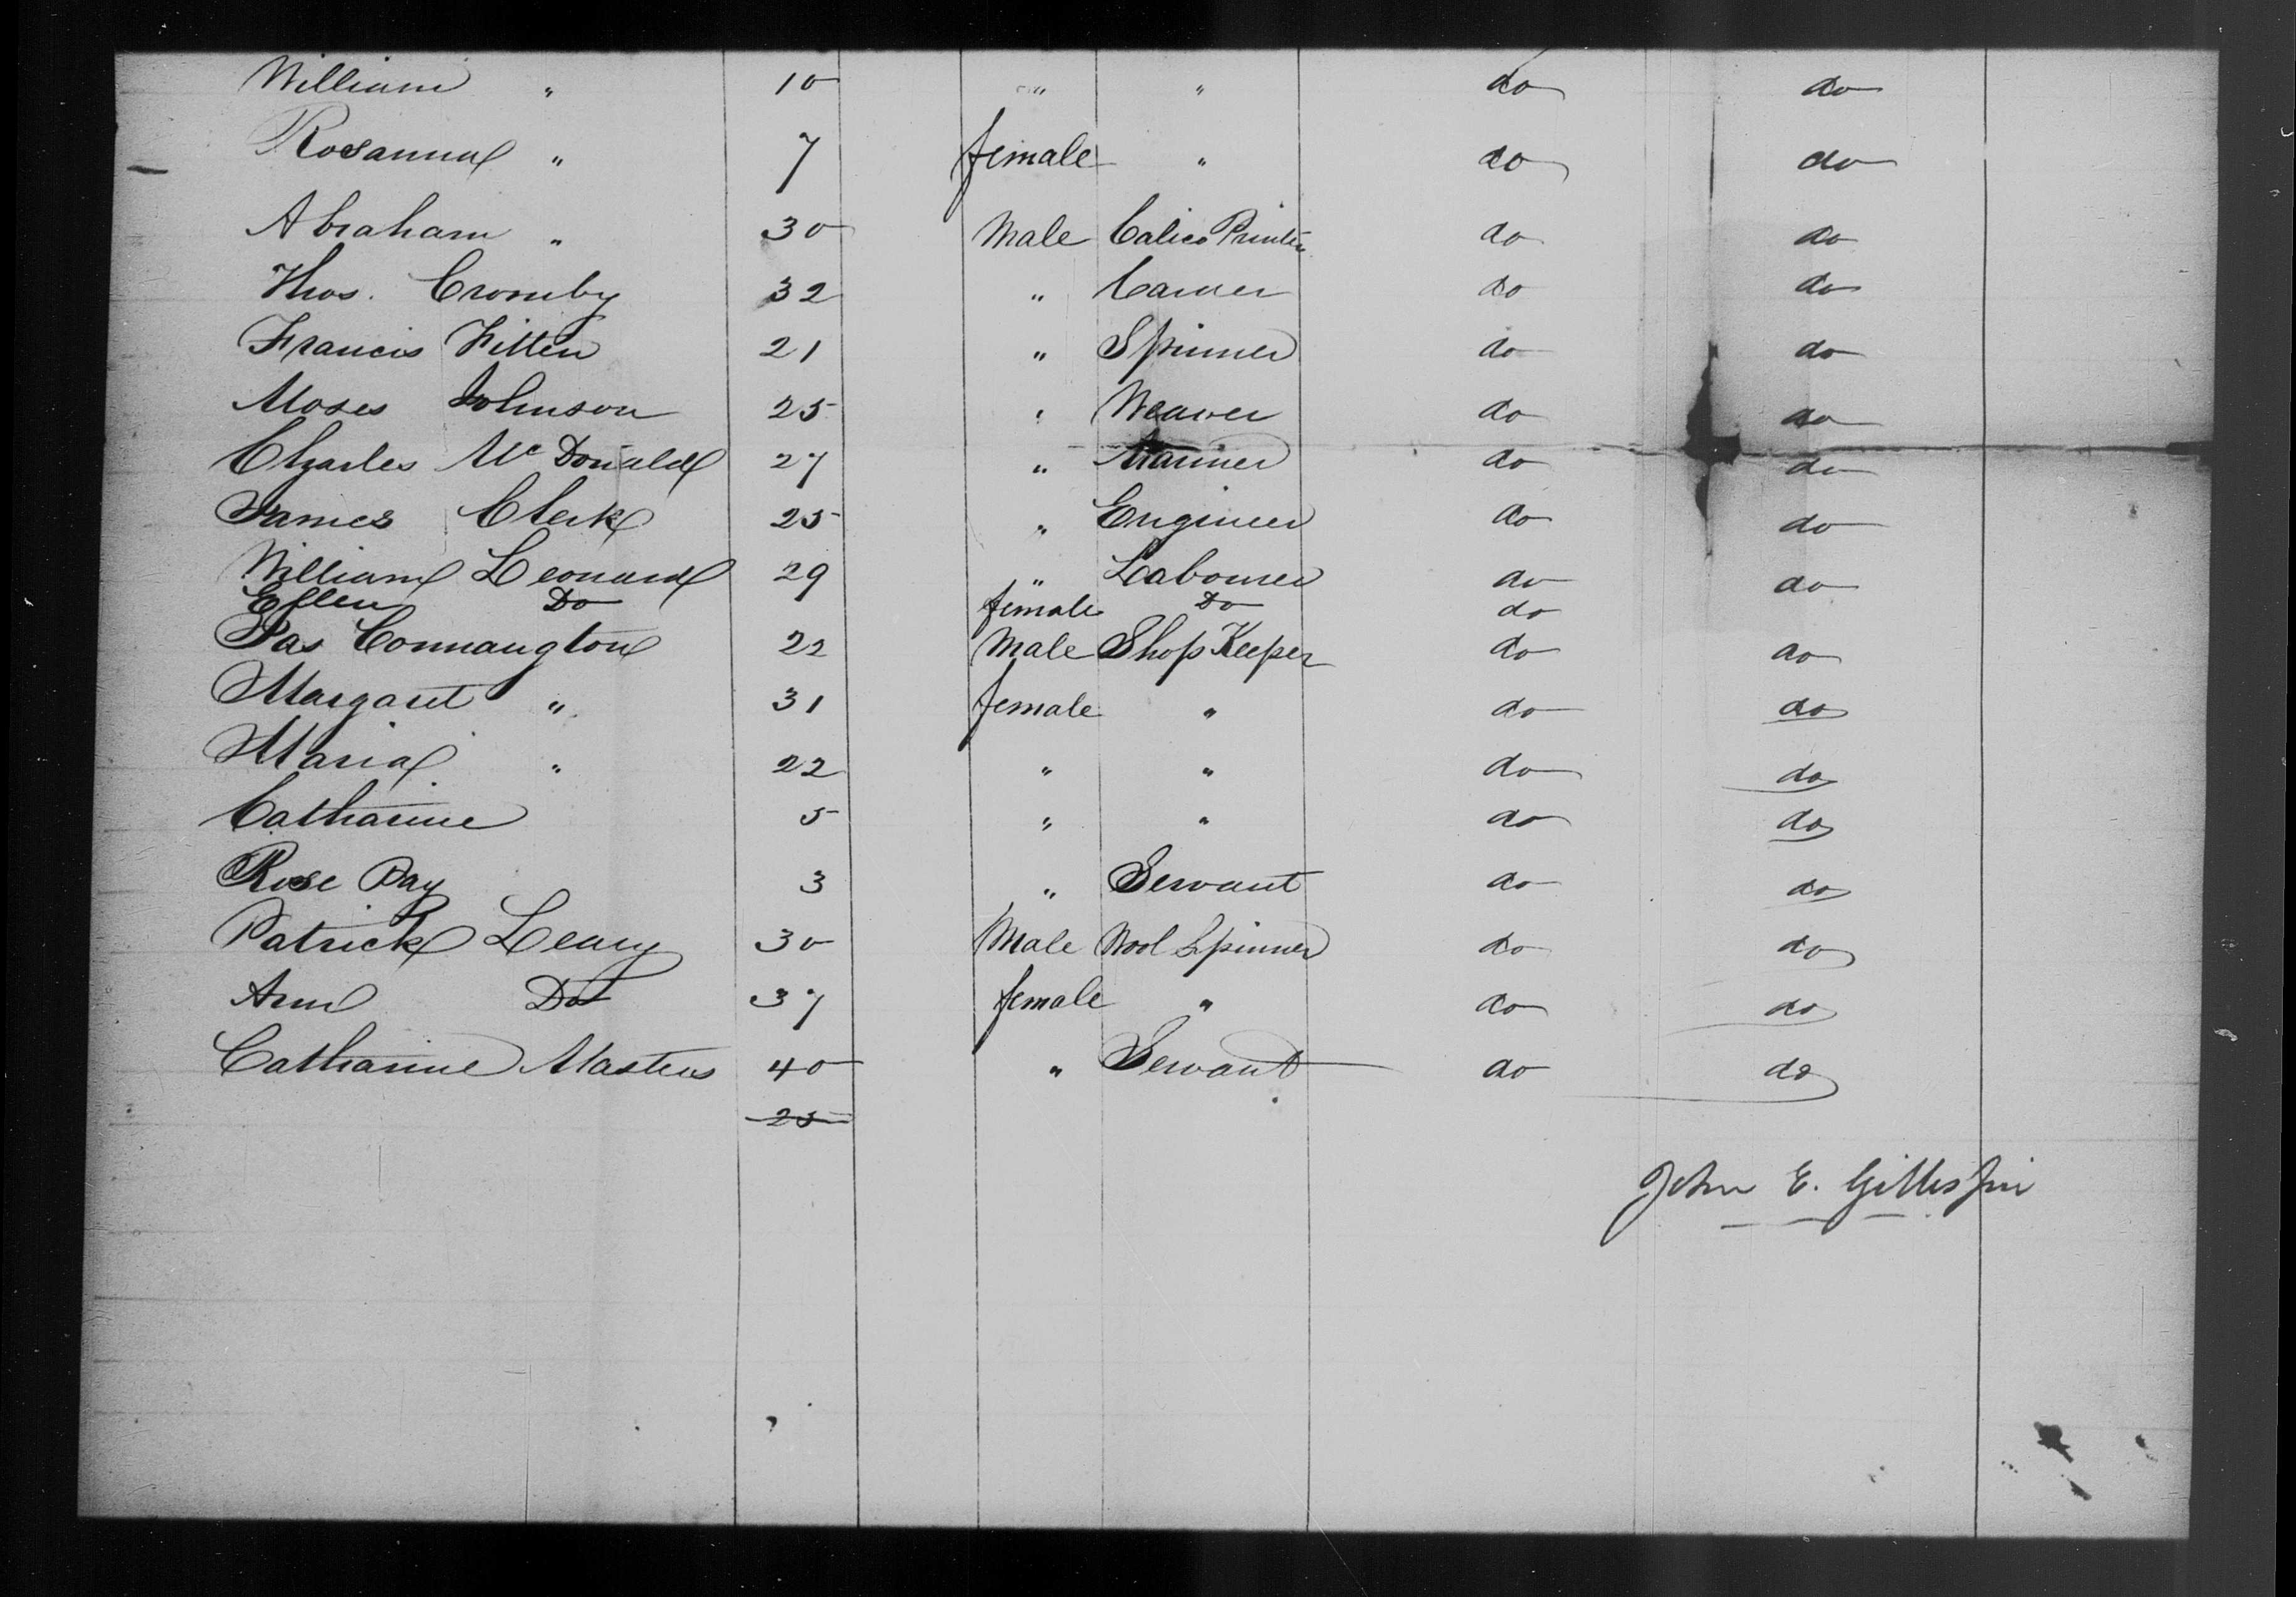 William " 10 " " do do
Rosanna " 7 female " do do
Abraham " 30 Male Calico Printer do do
Thos. Cromby 32 " Carver do do
Francis Fitten 21 " Spinner do do
Moses Johnson 25 " Weaver do do
Charles McDonald 27 " do do
James Clerk 25 " Engineer do do
William Leonard 29 " Labourer do do
Ellen Do female Do do
Jas Connaughton 22 Male Shop Keeper do do
Margaret " 31 female " do do
Maria " 22 " " do do
Catharine 5 " " do do
Rose Day 3 " Servant do do
Patrick Leary 30 Male Wool Spinner do do
Ann Do 37 female " do do
Catharine Masters 40 " Servant do do
25
John E. Gillespie